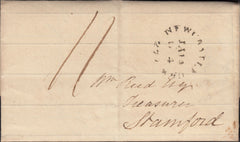 11
NEWCASTLE
Wm Reed Esqr
Treasurer
Stamford